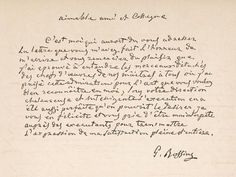 aimable ami et Collègue
C'est moi qui aurait du vous adresser
la lettre que vous m'avez fait l'honneur de
m'écrire et vous remercier du plaisir que
j'ai éprouvé à entendre les morceaux détachés
des chefs d'œuvres de nos maîtres à tous où j'ai
prêté
bien reconnaître en moi, sous votre direction
chaleureuse et intelligente l'execution en a
été aussi parfaite qu'on pouvait le désirer, je
vous en félicite et vous prie d'être mon interprète
auprès des exécutants pour transmettre
l'expression de ma satisfaction pleine d'entière.
G. Rossini